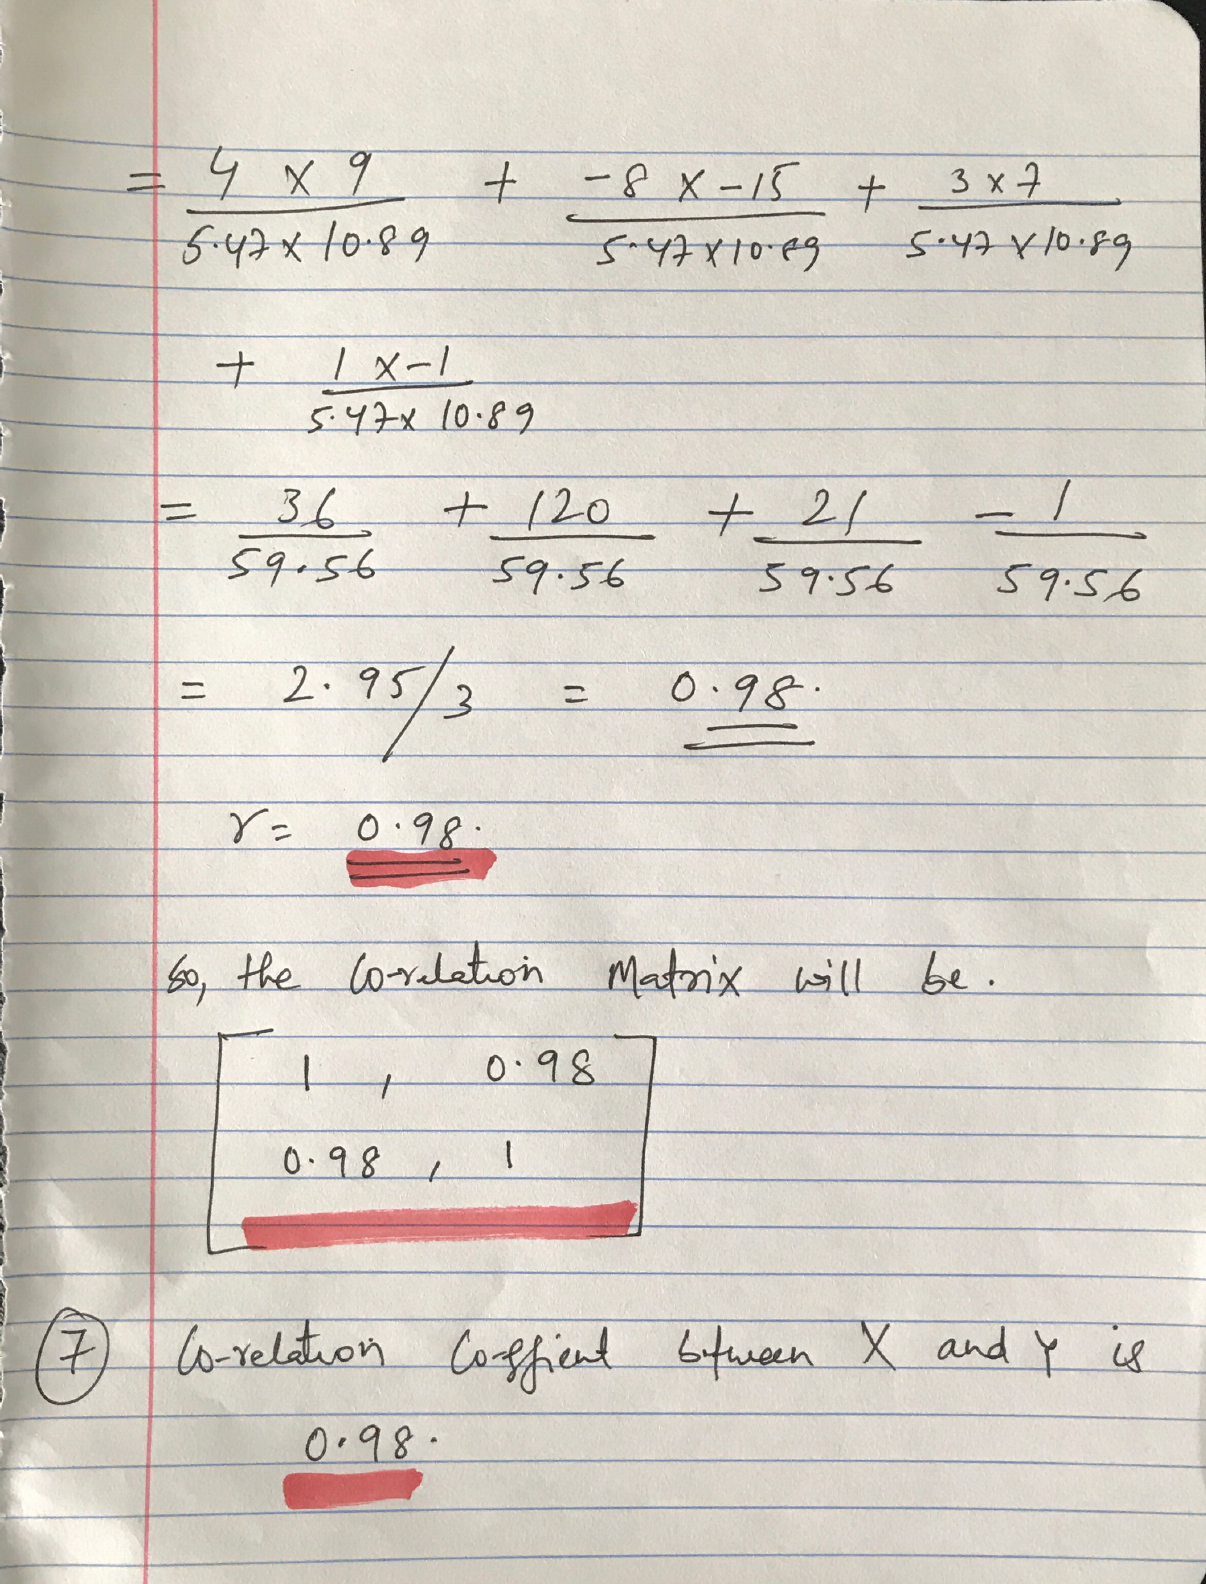 = 4 x 9 + -8 x -15 + 3 x 7
5.47 x 10.89 5.47 x 10.89 5.47 x 10.89
+ 1 x -1
5.47 x 10.89
= 36 + 120 + 21 - 1
59.56 59.56 59.56 59.56
= 2.95/3 = 0.98.
r = 0.98.
So, the Co-relation Matrix will be.
1 , 0.98
0.98 , 1
7 Co-relation Co-effient between X and Y is
0.98.